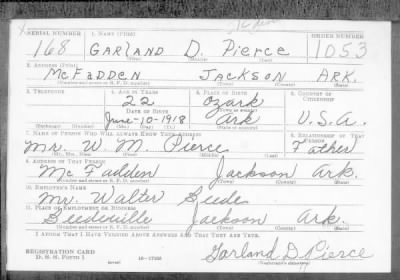 SERIAL NUMBER 1. NAME (Print) ORDER NUMBER
168 GARLAND D. Pierce 1053
2. ADDRESS (Print)
McFADDEN JACKSON ARK.
(Town) (County) (State)
3. TELEPHONE 4. AGE IN YEARS 5. PLACE OF BIRTH 6. COUNTRY OF CITIZENSHIP
22 Ozark
DATE OF BIRTH
June-10-1918 Ark U.S.A.
(Mo.) (Day) (Yr.)
7. NAME OF PERSON WHO WILL ALWAYS KNOW YOUR ADDRESS 8. RELATIONSHIP OF THAT PERSON
Mr. W. M. Pierce Father
(Mr., Mrs., Miss) (First) (Middle) (Last)
9. ADDRESS OF THAT PERSON
McFadden Jackson Ark.
(Number and street or R. F. D. number) (Town) (County) (State)
10. EMPLOYER'S NAME
Mr. Walter Beede
11. PLACE OF EMPLOYMENT OR BUSINESS
Beedeville Jackson Ark.
(Number and street or R. F. D. number) (Town) (County) (State)
I AFFIRM THAT I HAVE VERIFIED ABOVE ANSWERS AND THAT THEY ARE TRUE.
REGISTRATION CARD
D. S. S. Form 1 (over) 16-17105 Garland D. Pierce
(Registrant's signature)